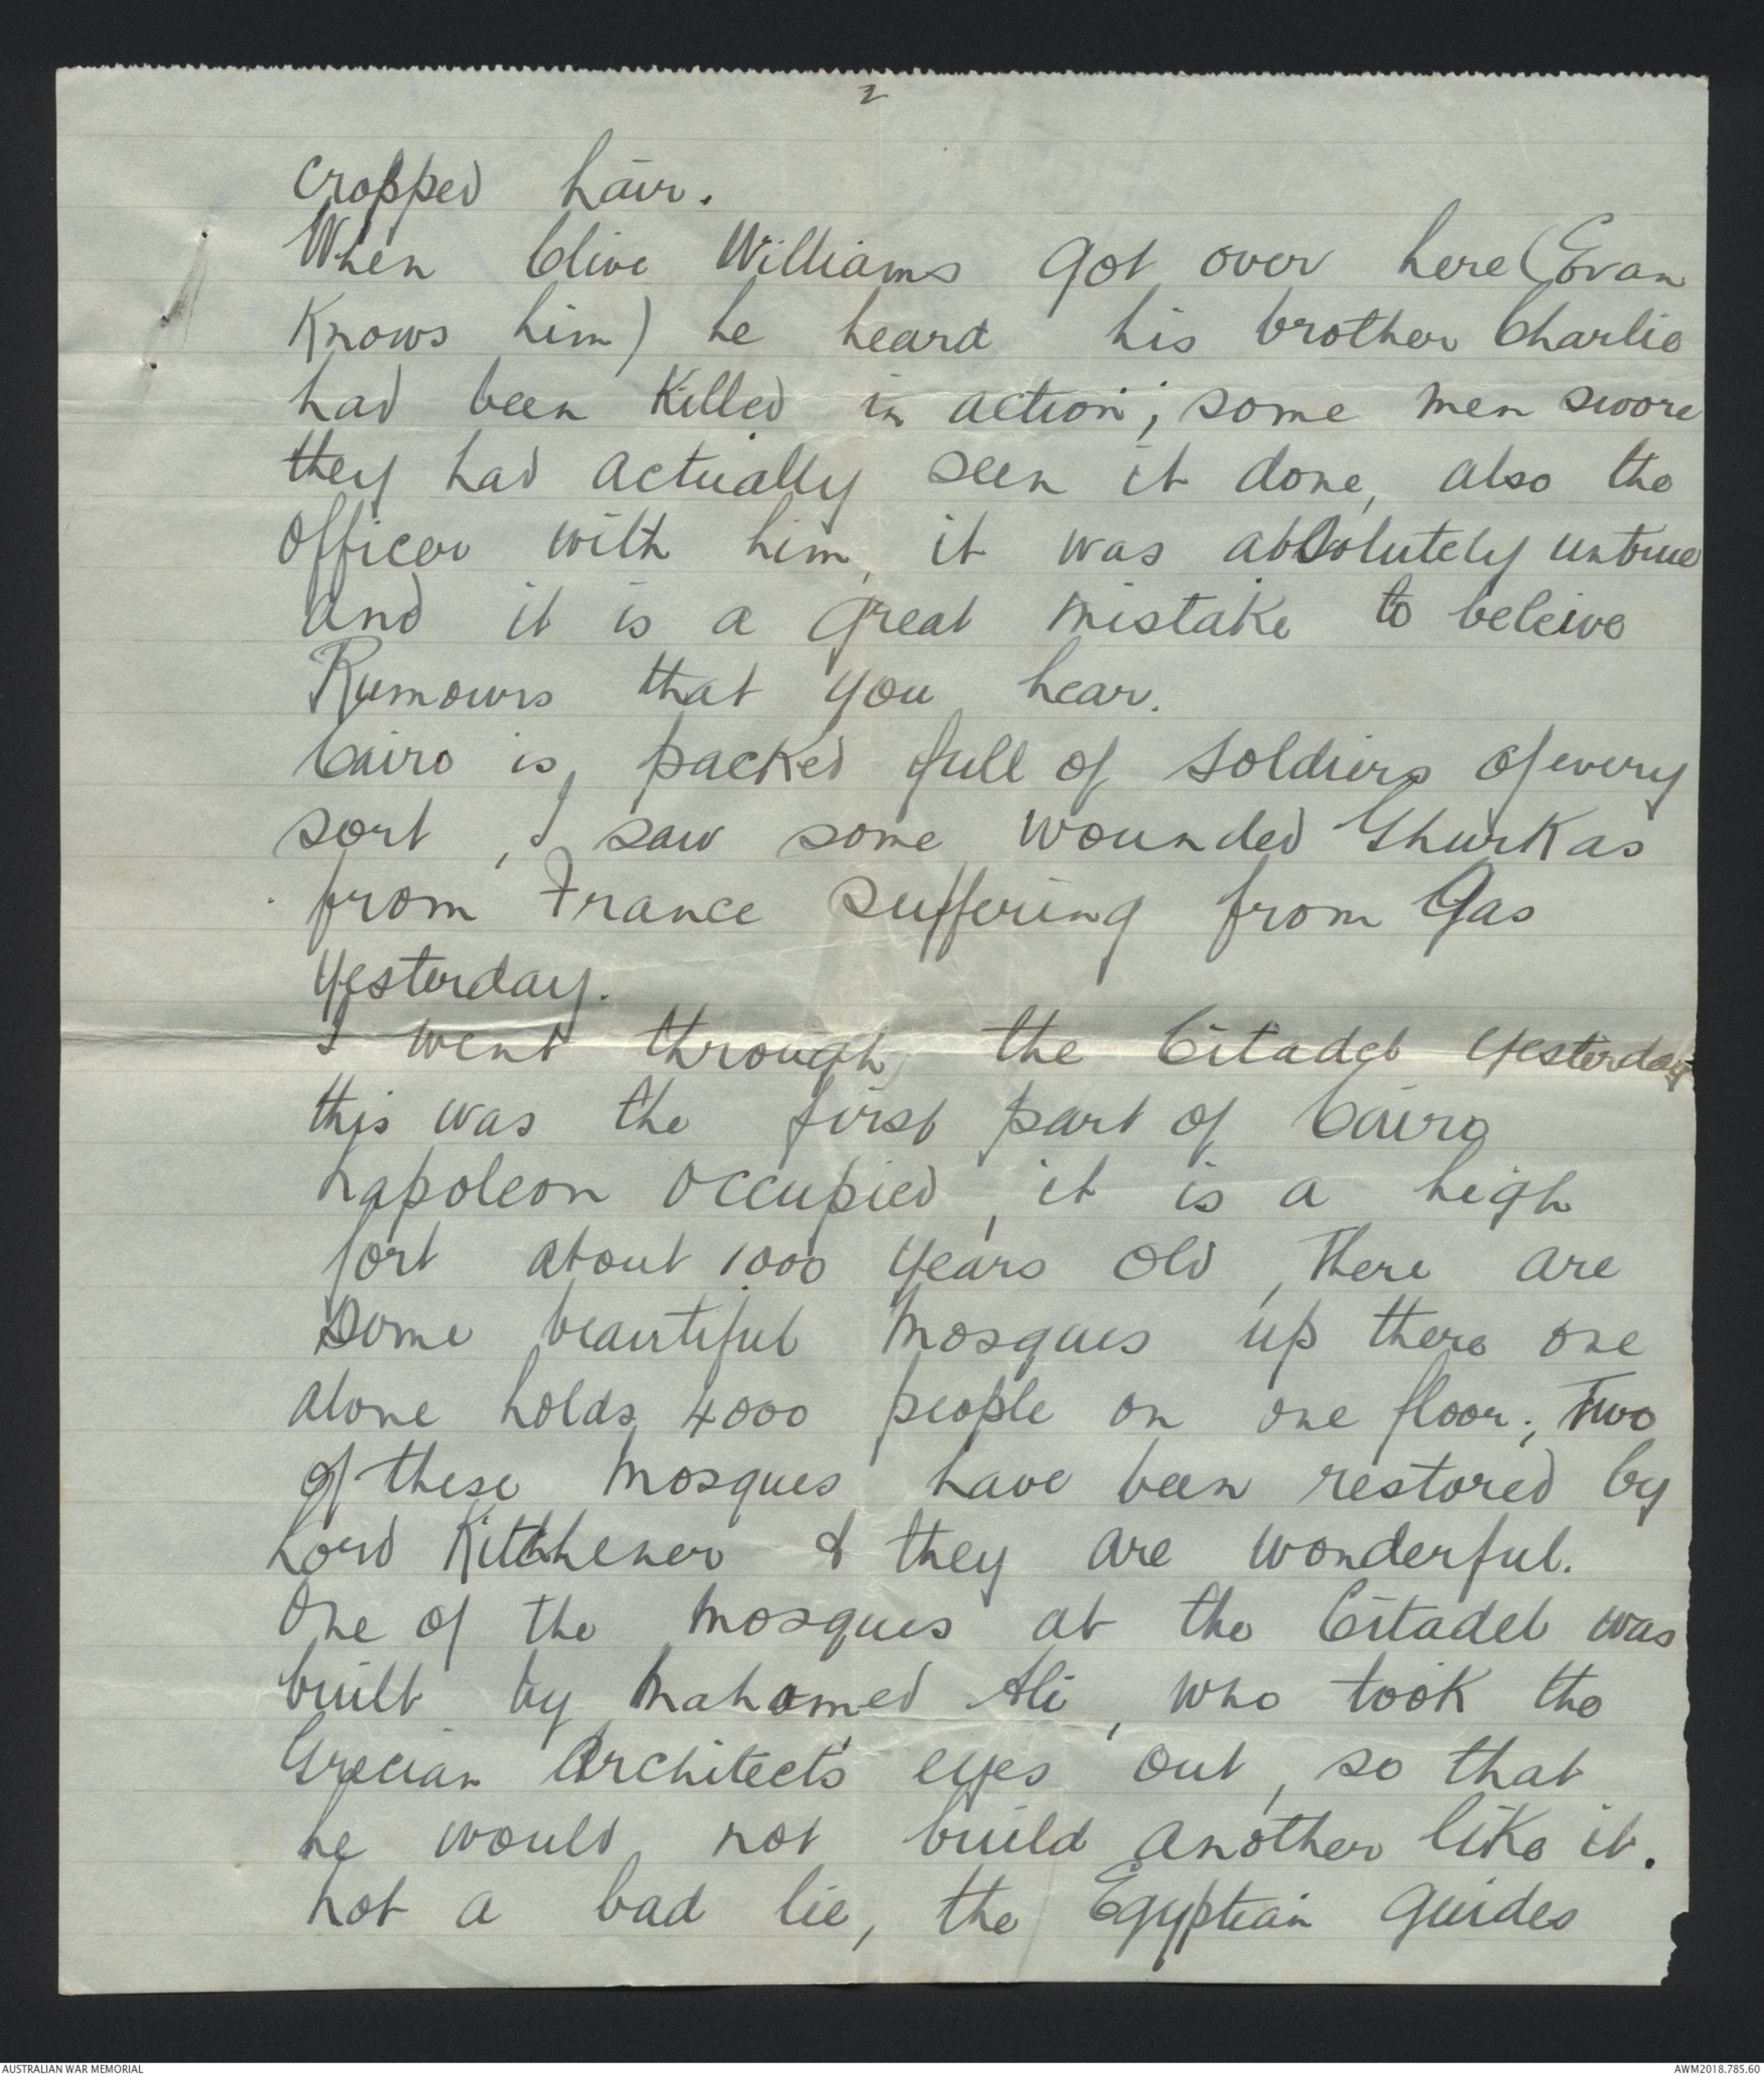 2
cropped hair.
When Clive Williams got over here (Evan
Knows him) he heard his brother Charlie
had been Killed in action; some men swore
they had actually seen it done, also the
Officer with him, it was absolutely untrue
and it is a great mistake to beleive
Rumours that you hear.
Cairo is packed full of soldiers of every
sort, I saw some wounded Ghurkas
from France suffering from Gas
yesterday.
I went through the Citadel yesterday
this was the first part of Cairo
Napoleon occupied, it is a high
fort about 1000 years old, there are
some beautiful Mosques up there one
alone holds 4000 people on one floor; Two
of these Mosques have been restored by
Lord Kitchener & they are wonderful.
One of the Mosques at the Citadel was
built by Mahomed Ali, who took the
Grecian Architects eyes out, so that
he would not build another like it.
Not a bad lie, the Egyptian Guides
AUSTRALIAN WAR MEMORIAL
AWM2018.785.60